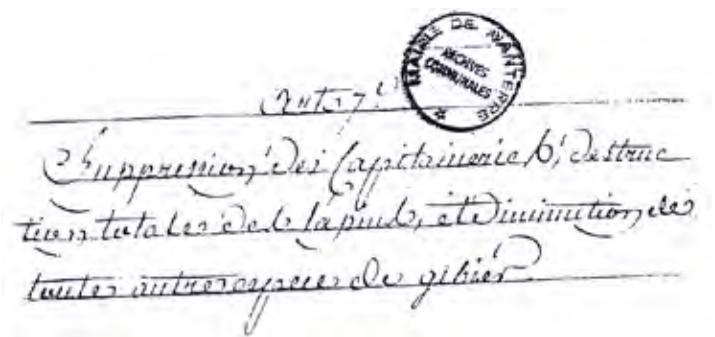 MAIRIE DE NANTERRE
ARCHIVES
COMMUNALES
Art. 7.
Suppression des Capitaineries, destruc
tion totale des lapins, et Diminution de
toute autre espece de gibier